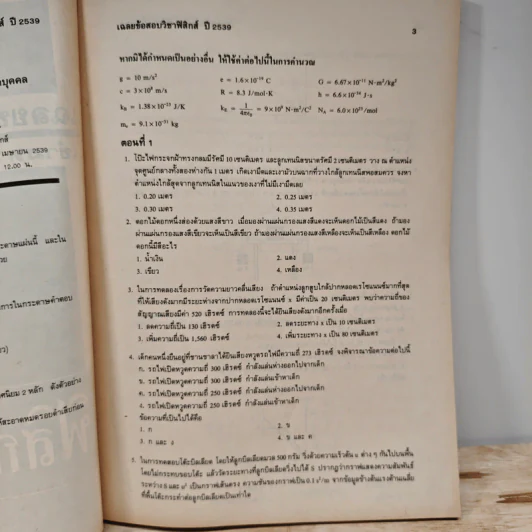 สิกส์ ปี 2539
บุคคล
เมษายน 2539
12.00 น.
ะดาษแผ่นนี้ และใน
การในกระดาษคำตอบ
ศนิยม 2 หลัก ดังตัวอย่าง
เฉลยข้อสอบวิชาฟิสิกส์ ปี 2539
3
หากมิได้กำหนดเป็นอย่างอื่น ให้ใช้ค่าต่อไปนี้ในการคำนวณ
g = 10 m/s² e = 1.6×10⁻¹⁹ C G = 6.67×10⁻¹¹ N·m²/kg²
c = 3×10⁸ m/s R = 8.3 J/mol·K h = 6.6×10⁻³⁴ J·s
k_B = 1.38×10⁻²³ J/K k_E = 1/4πε₀ = 9×10⁹ N·m²/C² N_A = 6.0×10²³/mol
m_e = 9.1×10⁻³¹ kg
ตอนที่ 1
1. โป๊ะไฟกระจกฝ้าทรงกลมมีรัศมี 10 เซนติเมตร และลูกเทนนิสขนาดรัศมี 2 เซนติเมตร วาง ณ ตำแหน่ง
จุดศูนย์กลางทั้งสองห่างกัน 1 เมตร เกิดเงามืดและเงามัวบนฉากที่วางใกล้ลูกเทนนิสพอสมควร จงหา
ตำแหน่งใกล้สุดจากลูกเทนนิสในแนวของเงาที่ไม่มีเงามืดเลย
1. 0.20 เมตร 2. 0.25 เมตร
3. 0.30 เมตร 4. 0.35 เมตร
2. ดอกไม้ดอกหนึ่งส่องด้วยแสงสีขาว เมื่อมองผ่านแผ่นกรองแสงสีแดงจะเห็นดอกไม้เป็นสีแดง ถ้ามอง
ผ่านแผ่นกรองแสงสีเขียวจะเห็นเป็นสีเขียว ถ้ามองผ่านแผ่นกรองแสงสีเหลืองจะเห็นเป็นสีเหลือง ดอกไม้
ดอกนี้มีสีอะไร
1. น้ำเงิน 2. แดง
3. เขียว 4. เหลือง
3. ในการทดลองเรื่องการวัดความยาวคลื่นเสียง ถ้าตำแหน่งลูกสูบใกล้ปากหลอดเรโซแนนซ์มากที่สุด
ที่ให้เสียงดังมากมีระยะห่างจากปากหลอดเรโซแนนซ์ x มีค่าเป็น 20 เซนติเมตร พบว่าความถี่ของ
สัญญาณเสียงมีค่า 520 เฮิรตซ์ การทดลองนี้จะได้ยินเสียงดังมากอีกครั้งเมื่อ
1. ลดความถี่เป็น 130 เฮิรตซ์ 2. ลดระยะทาง x เป็น 10 เซนติเมตร
3. เพิ่มความถี่เป็น 1,560 เฮิรตซ์ 4. เพิ่มระยะทาง x เป็น 80 เซนติเมตร
4. เด็กคนหนึ่งยืนอยู่ที่ชานชาลาได้ยินเสียงหวูดรถไฟมีความถี่ 273 เฮิรตซ์ จงพิจารณาข้อความต่อไปนี้
ก. รถไฟเปิดหวูดความถี่ 300 เฮิรตซ์ กำลังแล่นห่างออกไปจากเด็ก
ข. รถไฟเปิดหวูดความถี่ 300 เฮิรตซ์ กำลังแล่นเข้าหาเด็ก
ค. รถไฟเปิดหวูดความถี่ 250 เฮิรตซ์ กำลังแล่นห่างออกไปจากเด็ก
ง. รถไฟเปิดหวูดความถี่ 250 เฮิรตซ์ กำลังแล่นเข้าหาเด็ก
ข้อความที่เป็นไปได้คือ
1. ก 2. ข
3. ก และ ง 4. ข และ ค
5. ในการทดสอบโต๊ะบิลเลียด โดยให้ลูกบิลเลียดมวล 500 กรัม วิ่งด้วยความเร็วต้น u ต่าง ๆ กันไปบนพื้น
โดยไม่กระทบขอบโต๊ะ แล้ววัดระยะทางที่ลูกบิลเลียดวิ่งไปได้ S ปรากฏว่ากราฟแสดงความสัมพันธ์
ระหว่าง S และ u² เป็นกราฟเส้นตรง ความชันของกราฟเป็น 0.1 s²/m จากข้อมูลข้างต้นแรงต้านเฉลี่ย
ที่พื้นโต๊ะกระทำต่อลูกบิลเลียดเป็นเท่าใด